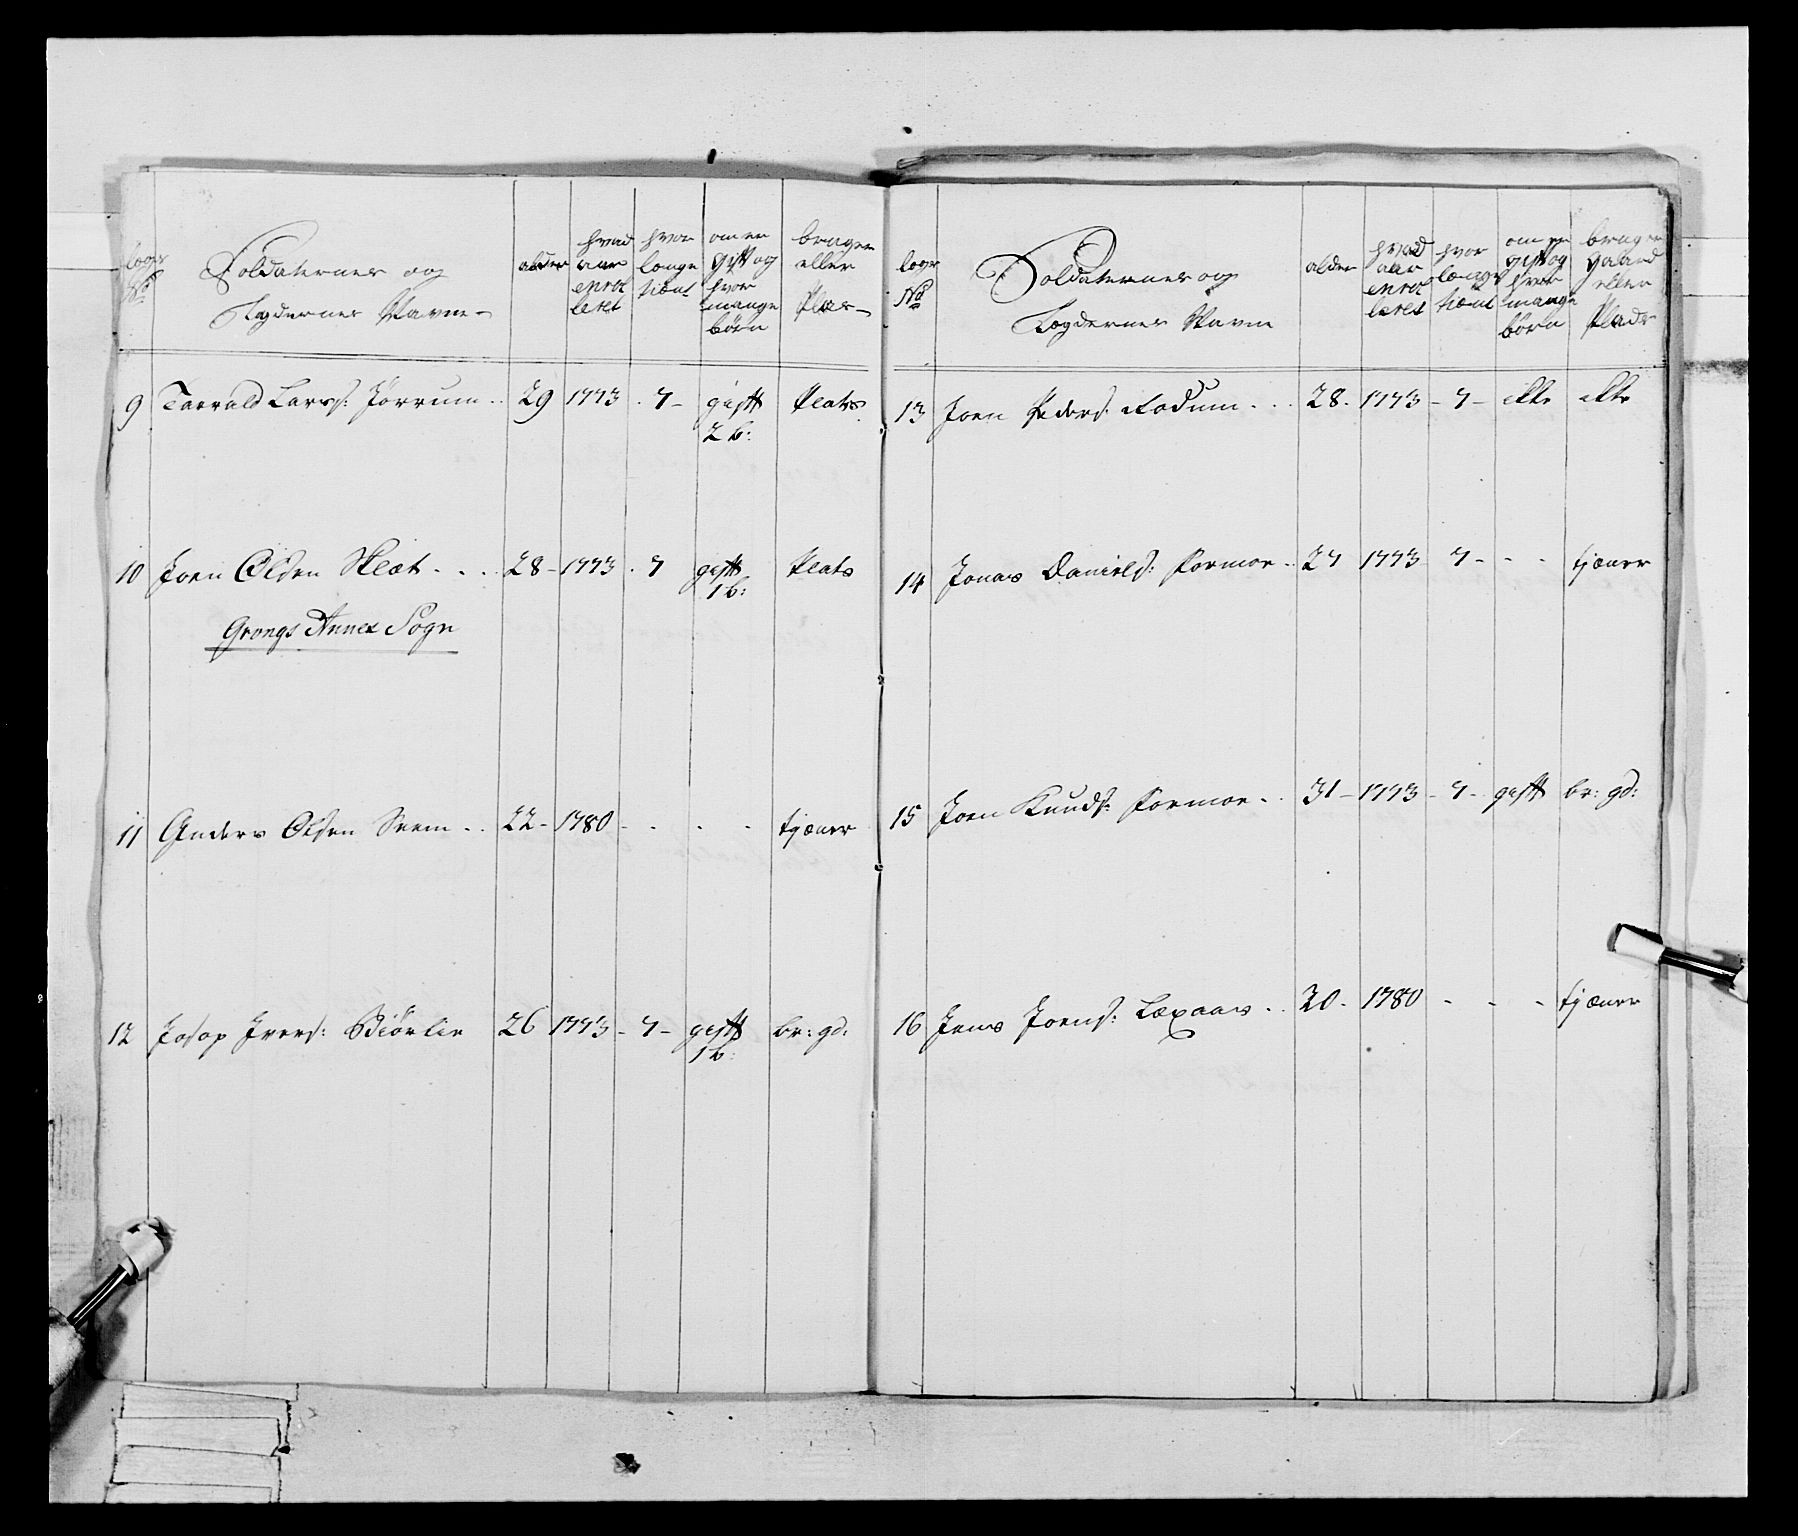 Lægs No
Soldaternes og
Lægdernes Navne
alder
hvad
aar
enrol
leret
hvor
længe
tient
om er
gift og
hvor
mange
børn
bruger
eller
Plas
9 Larss: Jørrum 29 1773 7 gift Plats
2 b:
10 Joen Olsen 28 1773 7 gift Plats
1 b:
Grongs Annex Sogn
11 Anders Olsen Seem 22 1780 tjæner
12 Josop Ivers: Biørlie 26 1773 7 gift br: gd:
1 b:
lægs
No
Soldaternes og
Lægdernes Navne
alder
hvad
aar
enrol
leret
hvor
længe
tiænt
om er
gift og
hvor
mange
børn
bruger
gaard
eller
Plads
13 Joen Peders: Fodum 28 1773 7 ikke ikke
14 Jonas Daniels: Formoe 27 1773 7 tjæner
15 Joen Knuds: Formoe 31 1773 7 gift br: gd:
16 Jens Joens: Laxaas 20 1780 tjæner